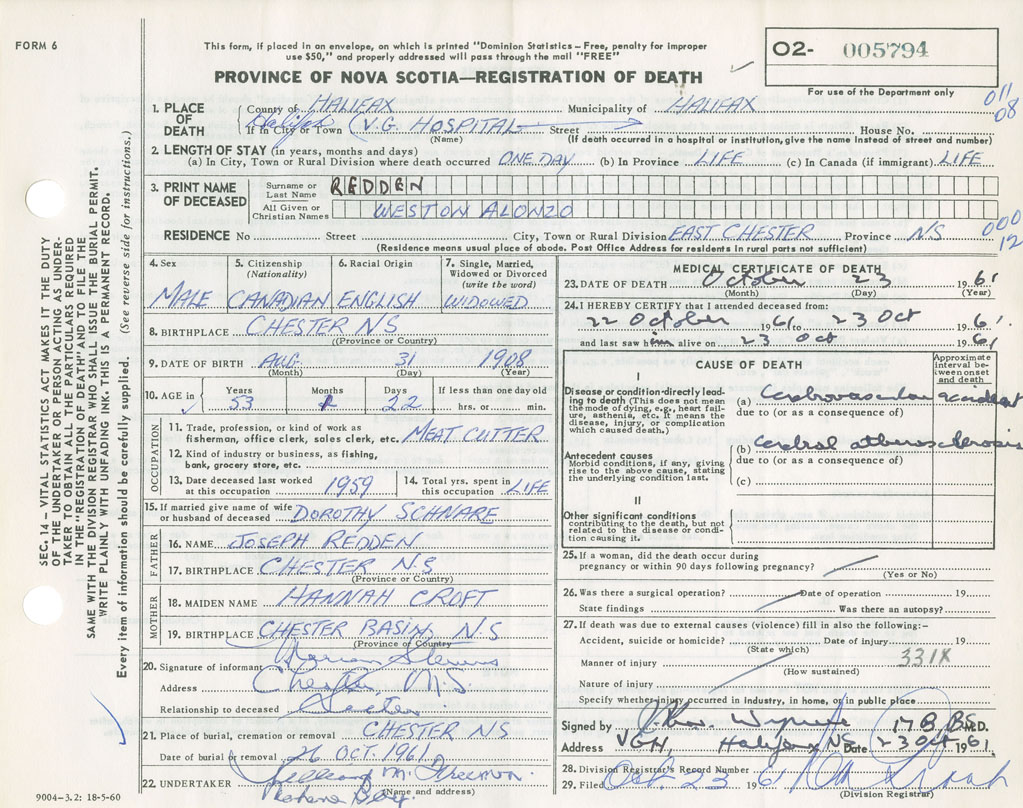 FORM 6
This form, if placed in an envelope, on which is printed "Dominion Statistics - Free, penalty for improper
use $50," and properly addressed will pass through the mail "FREE"
PROVINCE OF NOVA SCOTIA—REGISTRATION OF DEATH
02- 005794
For use of the Department only
011
08
1. PLACE OF DEATH
County of HALIFAX Municipality of HALIFAX
Halifax
If in City or Town (V.G. HOSPITAL Street House No.
(Name) (If death occurred in a hospital or institution, give the name instead of street and number)
2. LENGTH OF STAY (in years, months and days)
(a) In City, Town or Rural Division where death occurred ONE DAY (b) In Province LIFE (c) In Canada (if immigrant) LIFE
3. PRINT NAME OF DECEASED
Surname or Last Name REDDEN
All Given or Christian Names WESTON ALONZO
000
12
RESIDENCE No Street City, Town or Rural Division EAST CHESTER Province NS
(Residence means usual place of abode. Post Office Address for residents in rural parts not sufficient)
4. Sex 5. Citizenship (Nationality) 6. Racial Origin 7. Single, Married, Widowed or Divorced (write the word)
MALE CANADIAN ENGLISH WIDOWED
8. BIRTHPLACE CHESTER NS
(Province or Country)
9. DATE OF BIRTH AUG 31 1908
(Month) (Day) (Year)
10. AGE in Years Months Days If less than one day old
53 1 22 hrs. or min.
OCCUPATION
11. Trade, profession, or kind of work as
fisherman, office clerk, sales clerk, etc. MEAT CUTTER
12. Kind of industry or business, as fishing,
bank, grocery store, etc.
13. Date deceased last worked at this occupation 1959 14. Total yrs. spent in this occupation LIFE
15. If married give name of wife or husband of deceased DOROTHY SCHNARE
FATHER
16. NAME JOSEPH REDDEN
17. BIRTHPLACE CHESTER N.S
(Province or Country)
MOTHER
18. MAIDEN NAME HANNAH CROFT
19. BIRTHPLACE CHESTER BASIN, N.S
(Province or Country)
20. Signature of informant Stevens
Address Chester, N.S.
Relationship to deceased
21. Place of burial, cremation or removal CHESTER NS
Date of burial or removal 26 OCT. 1961
22. UNDERTAKER
(Name and address)
9004-3.2: 18-5-60
MEDICAL CERTIFICATE OF DEATH
23. DATE OF DEATH October 23 1961
(Month) (Day) (Year)
24. I HEREBY CERTIFY that I attended deceased from:
22 October 1961 to 23 Oct 1961
and last saw him alive on 23 Oct 1961
CAUSE OF DEATH
Approximate interval between onset and death
I
Disease or condition directly leading to death (This does not mean the mode of dying, e.g., heart failure, asthenia, etc. It means the disease, injury, or complication which caused death.)
(a) Cerebrovascular accident
due to (or as a consequence of)
Antecedent causes
Morbid conditions, if any, giving rise to the above cause, stating the underlying condition last.
(b) Cerebral atherosclerosis
due to (or as a consequence of)
(c)
II
Other significant conditions
contributing to the death, but not related to the disease or condition causing it.
25. If a woman, did the death occur during
pregnancy or within 90 days following pregnancy?
(Yes or No)
26. Was there a surgical operation? Date of operation 19
State findings Was there an autopsy?
27. If death was due to external causes (violence) fill in also the following:-
Accident, suicide or homicide? Date of injury 19
(State which)
331X
Manner of injury
(How sustained)
Nature of injury
Specify whether injury occurred in industry, in home, or in public place
Signed by M.D.
Address VGH, Halifax NS Date 23 Oct 1961
28. Division Registrar's Record Number
29. Filed Oct. 23 1961
(Division Registrar)
SEC. 14 – VITAL STATISTICS ACT MAKES IT THE DUTY
OF THE UNDERTAKER OR PERSON ACTING AS UNDER-
TAKER TO OBTAIN ALL THE PARTICULARS REQUIRED
IN THE "REGISTRATION OF DEATH" AND TO FILE THE
SAME WITH THE DIVISION REGISTRAR WHO SHALL ISSUE THE BURIAL PERMIT.
WRITE PLAINLY WITH UNFADING INK. THIS IS A PERMANENT RECORD.
Every item of information should be carefully supplied. (See reverse side for instructions.)